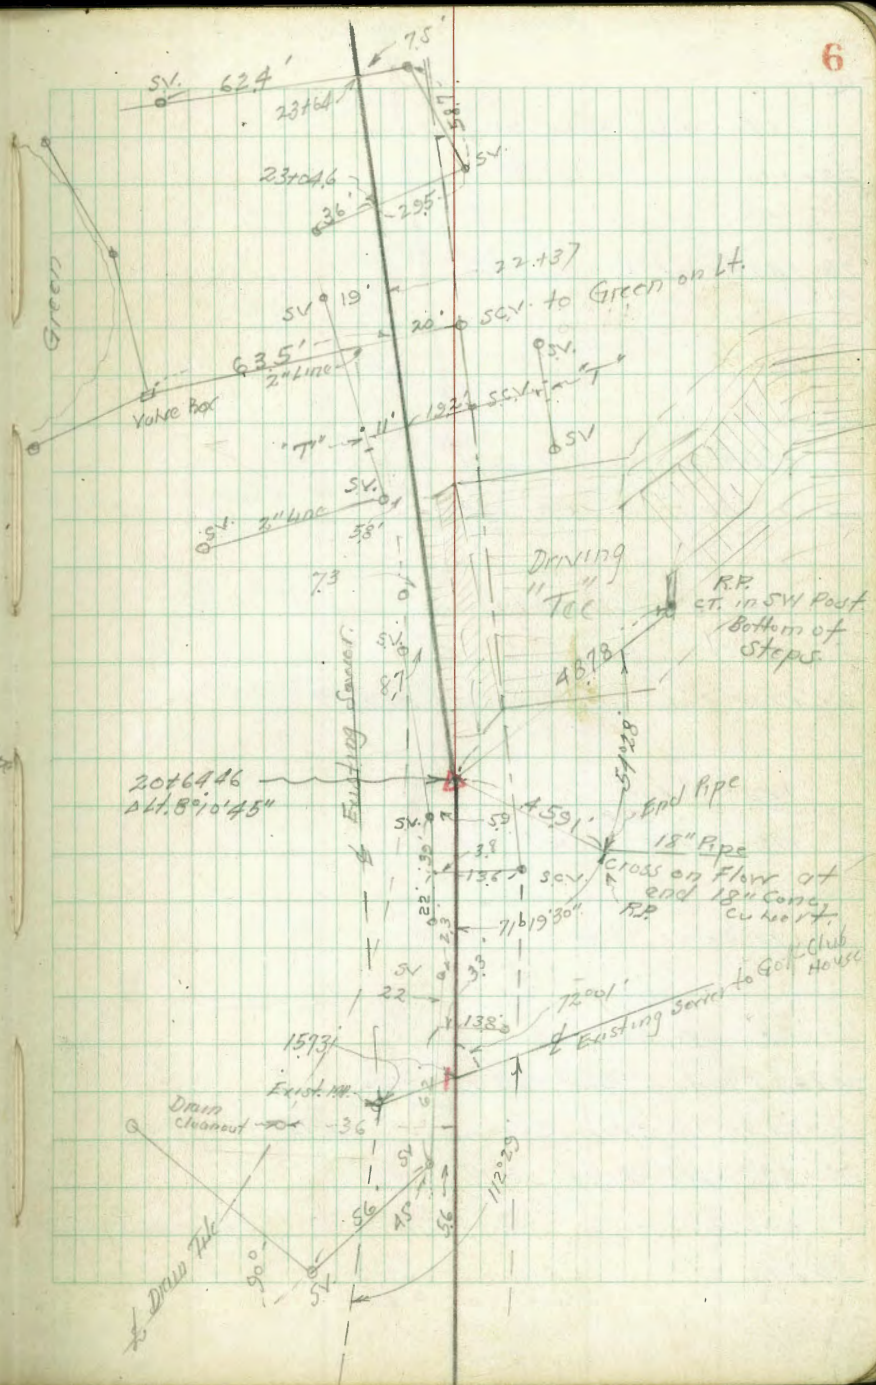 6
7.5'
SV. 62.4'
23+64
58.7'
SV.
23+04.6
36'
29.5
22+37
Green
SV 19'
20' S.C.V. to Green on Lt.
63.5'
2" Line
SV.
Valve Box
"T" 11' 19.2' S.C.V. "T"
SV
SV.
SV. 2" Line
5.8'
Driving
"Tee"
7.3
R.P.
CT. in SW Post
Bottom of
Steps.
SV.
8.7
48.78
Existing Sewer
54°28'
20+64.46
Δ Lt. 8°10'45"
45.91'
End Pipe
SV. 5.9
18" Pipe
3.8
Cross on Flow at
end 18" Conc.
Culvert.
R.P.
13.6 S.C.V.
22'
2.3
71°19'30"
SV
3.3
22
72°01'
13.8
℄ Existing Sewer to Golf Club
House
15.73
Exist. M.H.
6.2
Drain
Cleanout
36
SV
112°29'
56'
45°
5.6
90°
SV.
℄ Drain Tile